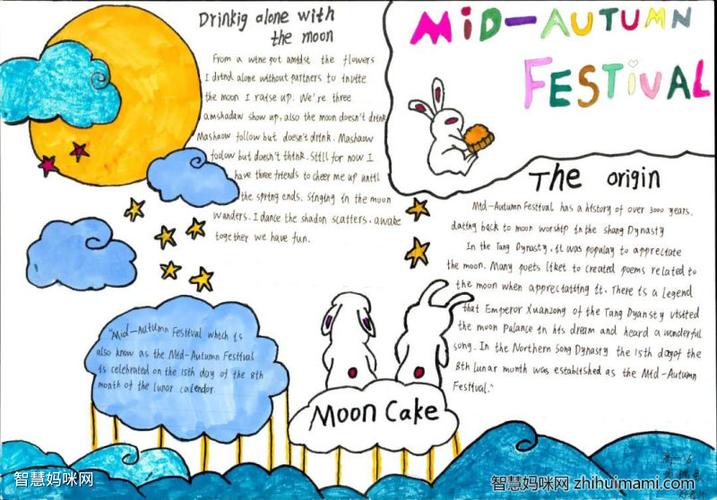 Drinkig alone with
the moon
From a wine pot amidst the flowers
I drind alone without partners to invite
the moon I raise up. We're three
amshadaw show up, also the moon doesn't drink
Mashaow follow but doesn't drink. Mashaow
follow but doesn't think. Still for now I
have three friends to cheer me up until
the spring ends. Singing in the moon
wanders. I dance the shadon scatters. awake
together we have fun.
MID-AUTUMN
FESTIVAL
The origin
Mid-Autumn Festival has a history of over 3000 years.
dating back to moon worship in the shang Dynasty
In the Tang Dynasty, it was populay to appreciate
the moon. Many poets liket to created poems related to
the moon when appreciatiing it. There is a legend
that Emperor Xuanzong of the Tang Dyansty visited
the moon Palance in his dream and heard a wonderful
song. In the Northern Song Dynasty the 15th dayof the
8th lunar munth was established as the Mid-Autumn
Festival."
"Mid-Autumn Festival which is
also know as the Mid-Autumn Festival
is celebrated on the 15th day of the 8th
month of the lunar calendar.
Moon Cake
智慧妈咪网
智慧妈咪网 zhihuimami.com